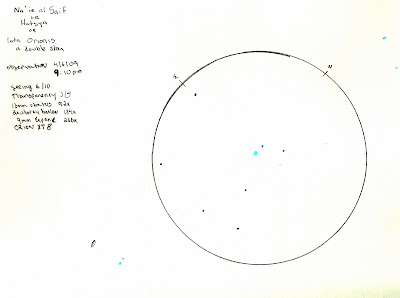 Na'ir al Saif
or
Hatsya
or
Iota Orionis
a double star
observation 4/6/09
9:10 pm
Seeing 6/10
Transparency 3/5
92x
barlow 184x
9mm 266x
Orion XT8
N